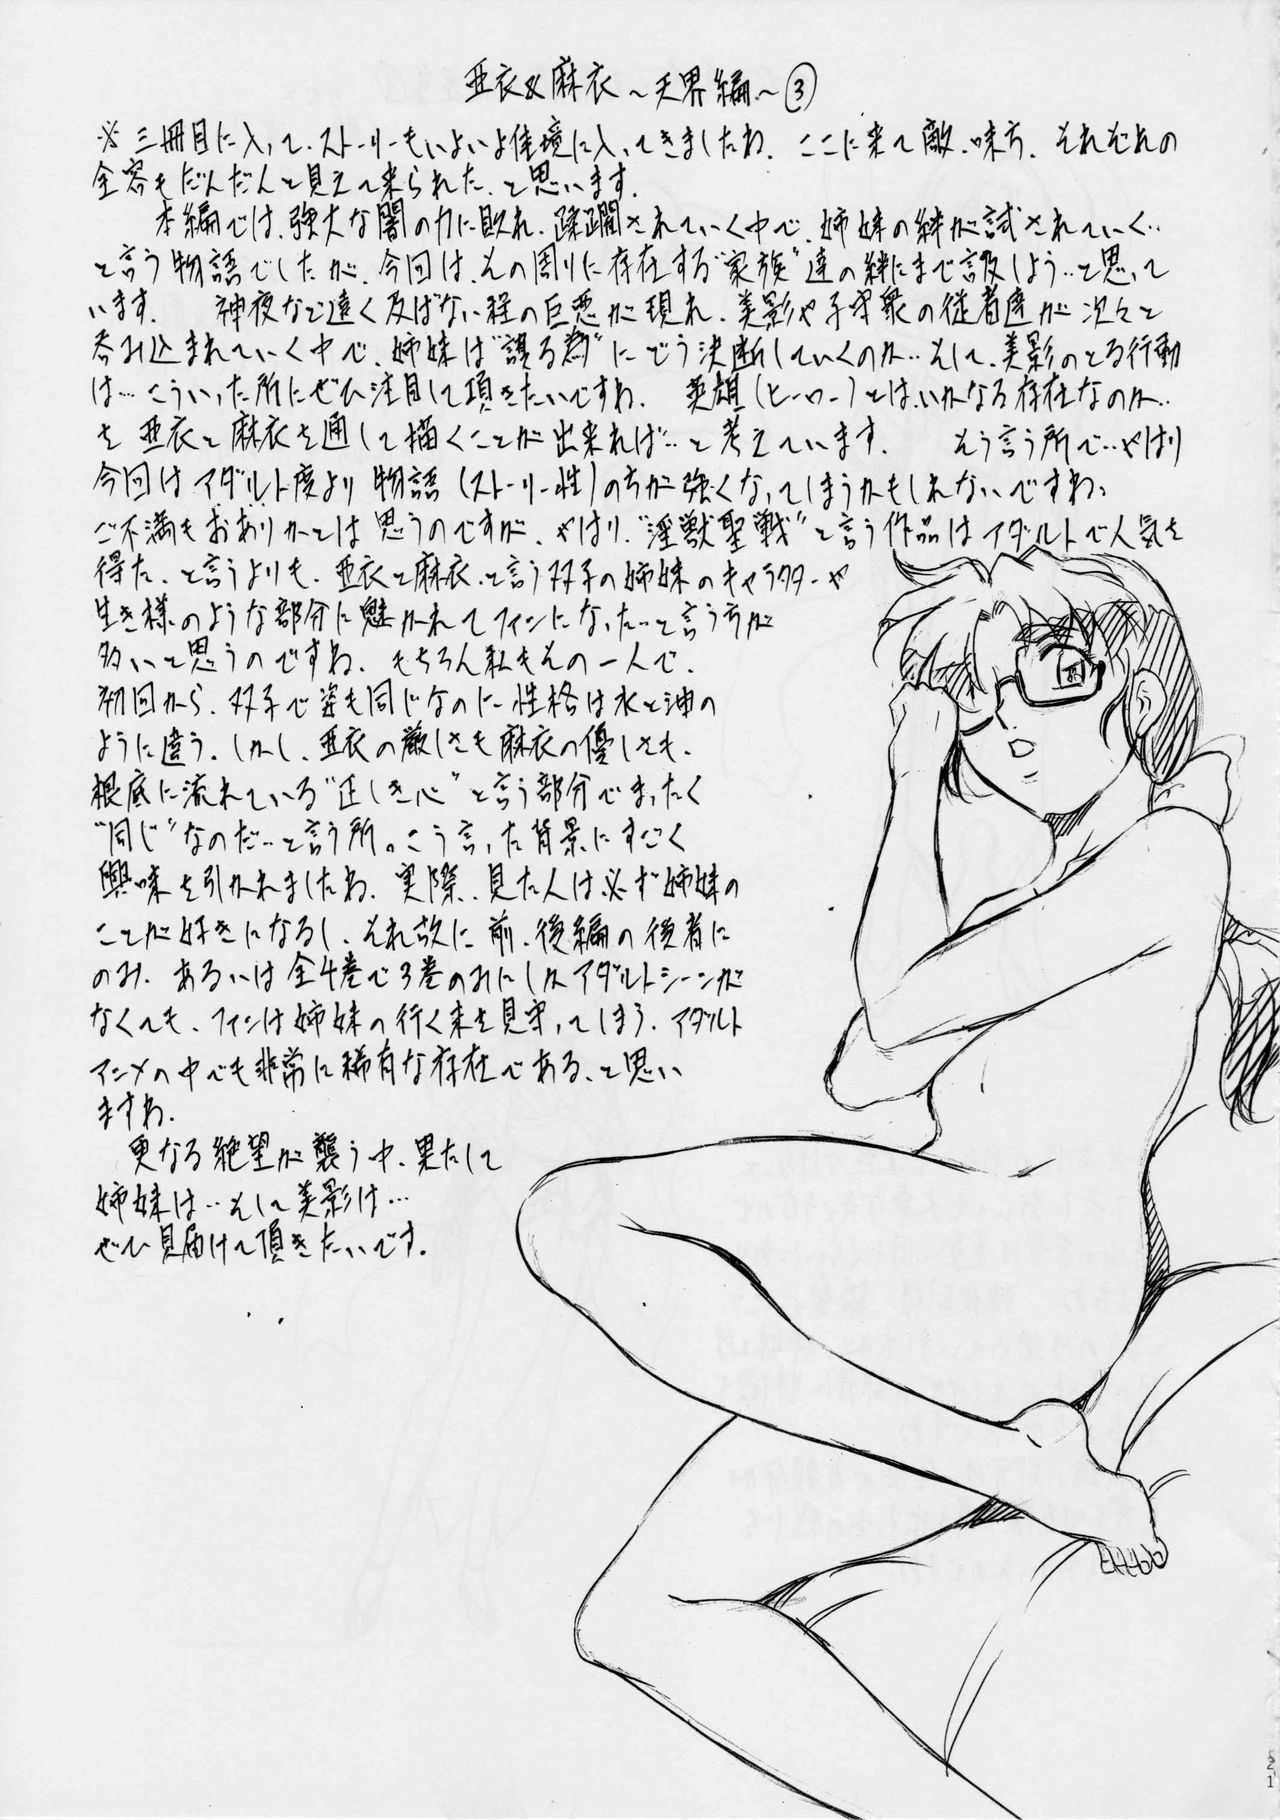 亜衣&麻衣～天界編～③
※三冊目に入って、ストーリーもいよいよ佳境に入ってきましたね。ここに来て敵、味方、それぞれの
全容もだんだんと見えて来られた、と思います。
本編では、強大な闇の力に敗れ、蹂躙されていく中で、姉妹の絆が試されていく‥
と言う物語でしたが、今回は、その周りに存在する“家族”達の絆にまで言及しよう‥と思って
います。 神夜など遠く及ばない程の巨悪が現れ、美影や子守衆の従者達が次々と
呑み込まれていく中で、姉妹は“護る為”にどう決断していくのか‥そして、美影のとる行動
は…こういった所にぜひ注目して頂きたいですね。 英雄(ヒーロー)とは、いかなる存在なのか‥
を 亜衣と麻衣を通して描くことが出来れば‥と考えています。 そう言う所で‥やはり
今回はアダルト度より 物語(ストーリー性)の方が強くなってしまうかもしれないですね。
ご不満もおありかとは思うのですが、やはり、“淫獣聖戦”と言う作品はアダルトで人気を
得た、と言うよりも、亜衣と麻衣、と言う双子の姉妹のキャラクターや
生き様のような部分に魅かれてファンになった‥と言う方が
多いと思うのですね。もちろん私もその一人で、
初回から、双子で姿も同じなのに性格は水と油の
ように違う。しかし、亜衣の厳しさも麻衣の優しさも、
根底に流れている“正しき心”と言う部分でまったく
“同じ”なのだ‥と言う所。こう言った背景にすごく
興味を引かれましたね。実際、見た人は必ず姉妹の
ことが好きになるし、それ故に前、後編の後者に
のみ、あるいは全4巻で3巻のみにしかアダルトシーンが
なくても、ファンは姉妹の行く末を見守ってしまう、アダルト
アニメの中でも非常に稀有な存在である、と思い
ますね。
更なる絶望が襲う中、果たして
姉妹は‥そして美影は…
ぜひ見届けて頂きたいです。
21